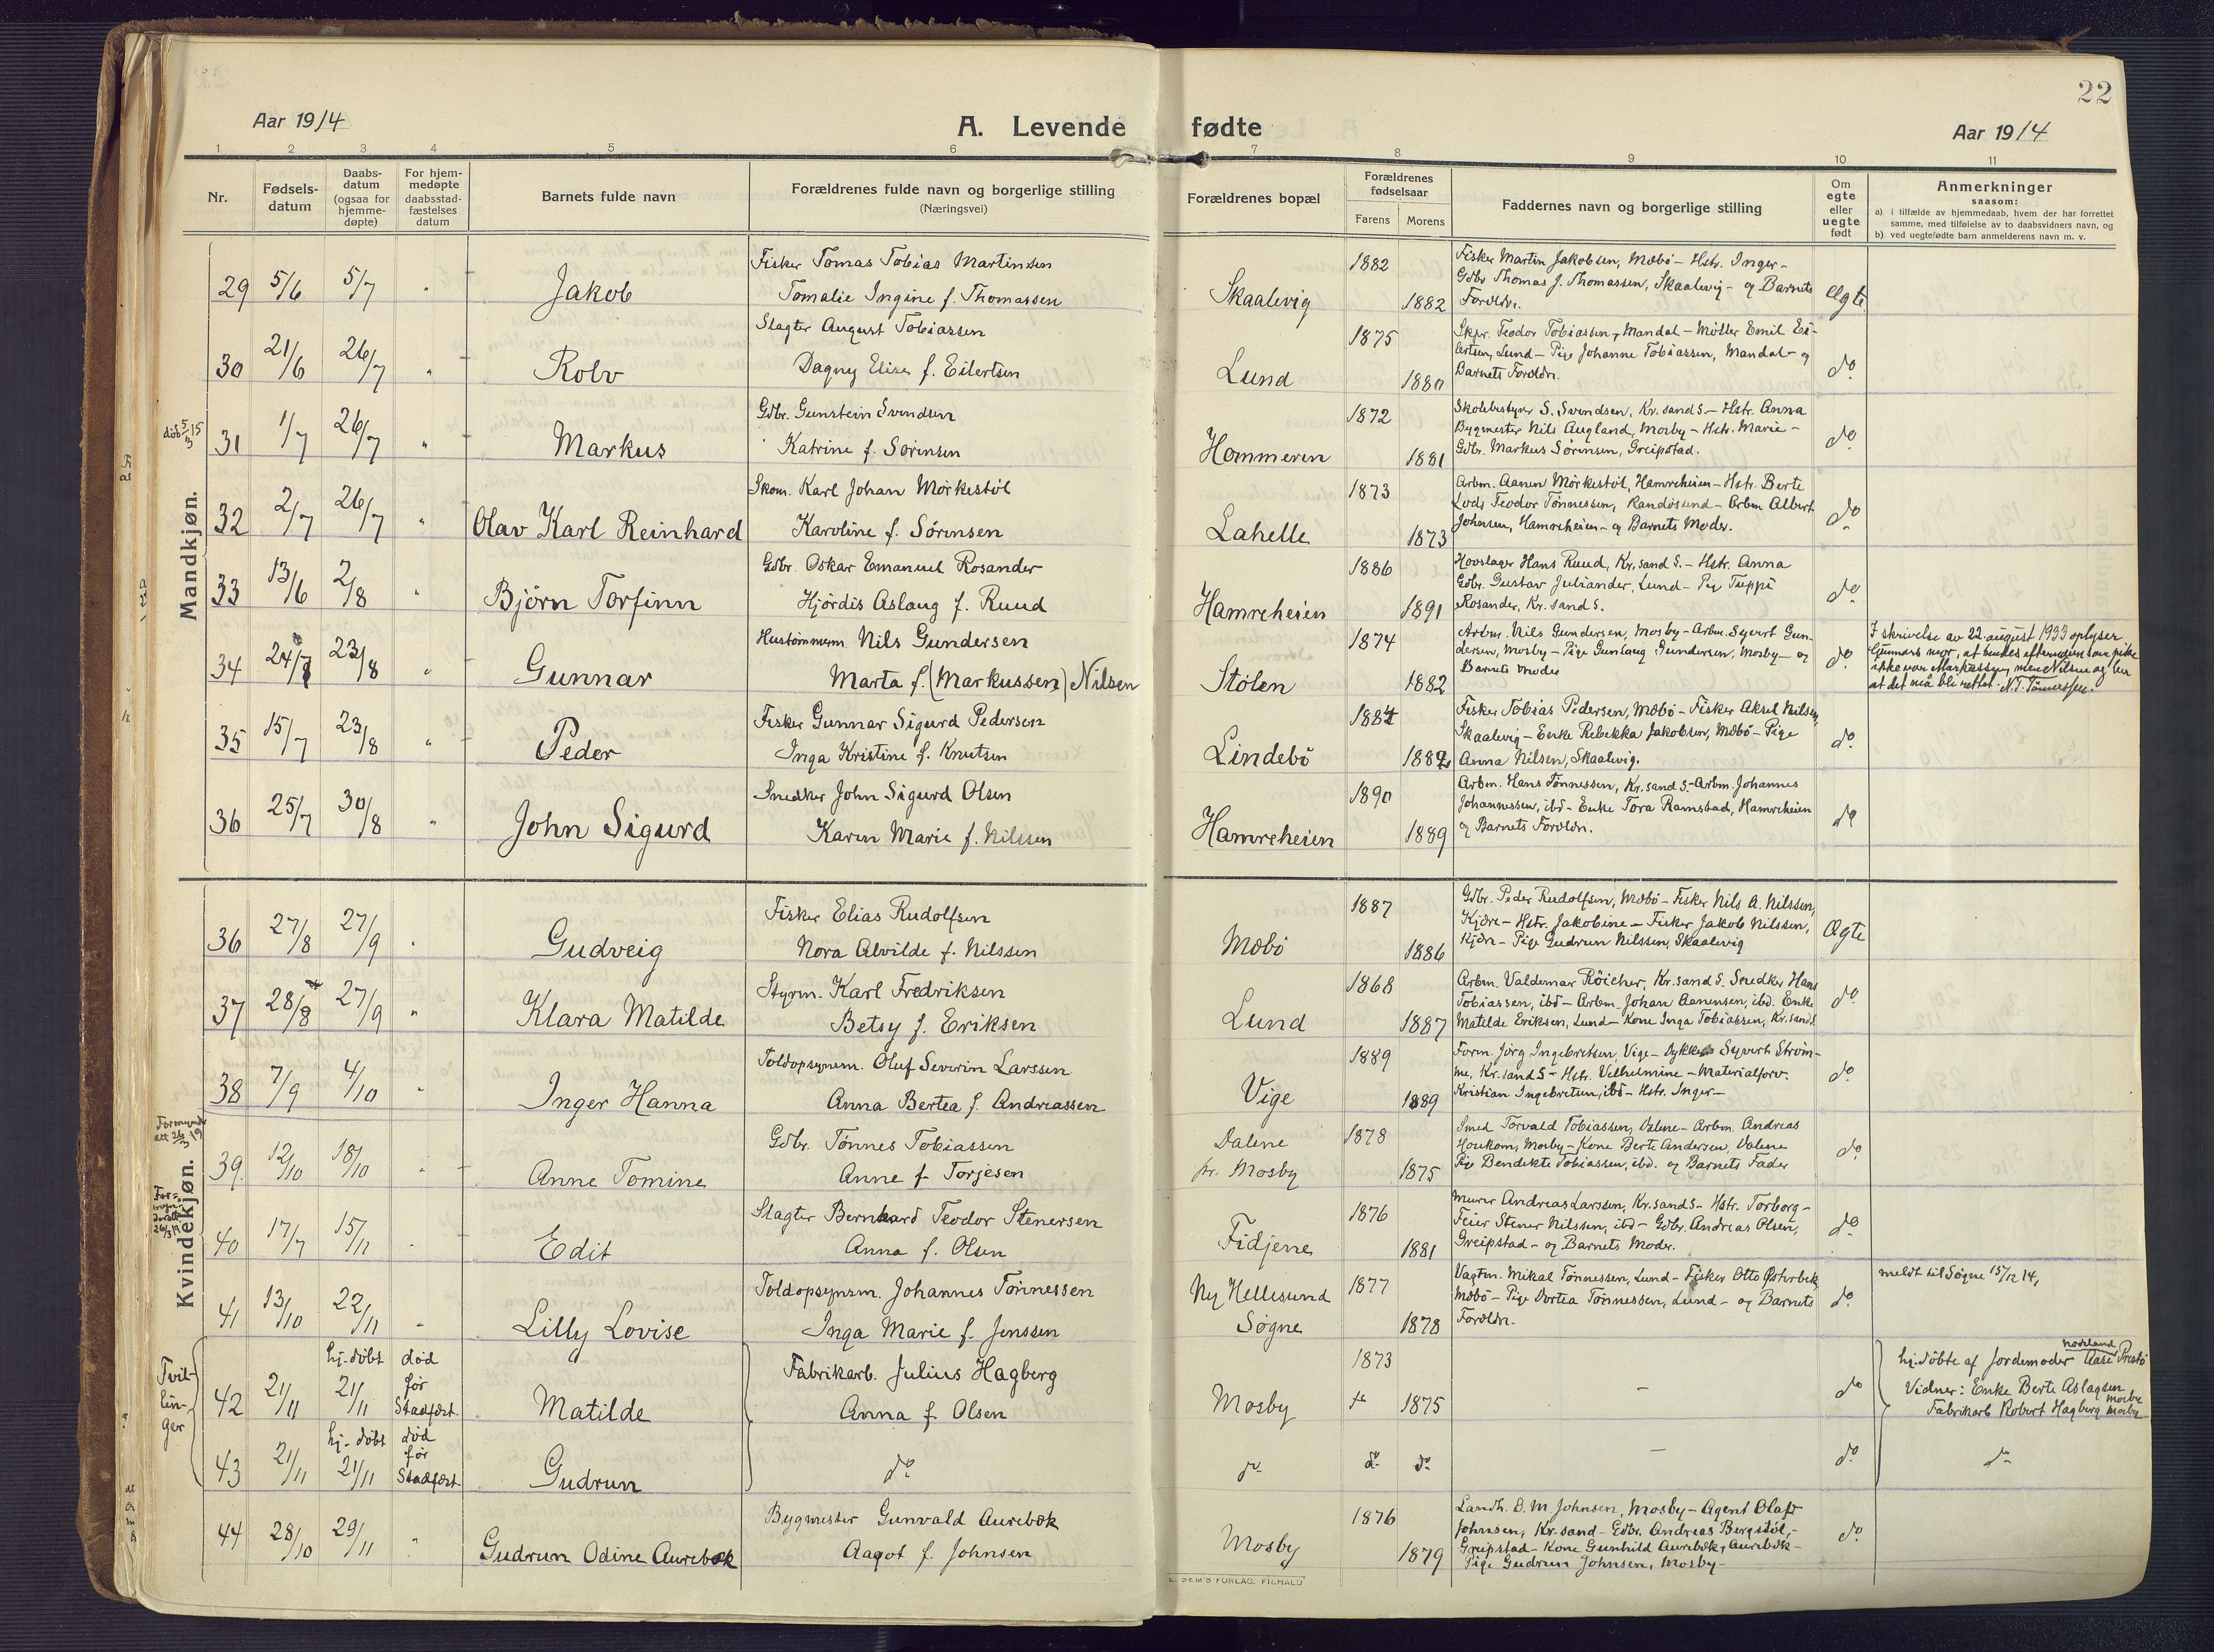 22
Aar 1914
A. Levende fødte
Aar 1914
1 2 3 4 5 6 7 8 9 10 11
Nr.
Fødsels-
datum
Daabs-
datum
(ogsaa for
hjemme-
døpte)
For hjem-
medøpte
daabsstad-
fæstelses
datum
Barnets fulde navn
Forældrenes fulde navn og borgerlige stilling
(Næringsvei)
Forældrenes bopæl
Forældrenes
fødselsaar
Farens Morens
Faddernes navn og borgerlige stilling
Om
egte
eller
uegte
født
Anmerkninger
saasom:
a) i tilfælde av hjemmedaab, hvem der har forrettet
samme, med tilføielse av to daabsvidners navn, og
b) ved uegtefødte barn anmelderens navn m. v.
Mandkjøn.
29 5/6 5/7 " Jakob
Fisker Tomas Tobias Martinsen
Tomalie Ingine f. Thomassen
Skaalevig 1882 1882
Fisker Martin Jakobsen, Mæbö - Hstr. Inger -
Gdbr Thomas J. Thomassen, Skaalevig - og Barnets
Forældr.
Ægte
30 21/6 26/7 " Rolv
Slagter August Tobiassen
Dagny Elise f. Eilertsen
Lund 1875 1880
Skpr. Teodor Tobiassen, Mandal - Möller Emil Ei-
lertsen, Lund - Pige Johanne Tobiassen, Mandal - og
Barnets Forældr.
do
död 5/3 15
31 1/7 26/7 " Markus
Gdbr. Gunstein Svendsen
Katrine f. Sörensen
Hommeren 1872 1881
Skolebestyrer S. Svendsen, Kr.sand S. - Hstr. Anna
Bygmester Nils Augland, Mosby - Hstr. Marie -
Gdbr. Markus Sörensen, Greipstad.
do
32 2/7 26/7 " Olav Karl Reinhard
Skom. Karl Johan Mörkestöl
Karoline f. Sörensen
Lahelle 1873 1873
Arbm. Aanen Mörkestöl, Hamreheien - Hstr. Berte
Lods Teodor Tönnessen, Randösund - Arbm Albert
Johnsen, Hamreheien - og Barnets Moder.
do
33 13/6 2/8 " Björn Torfinn
Gdbr. Oskar Emanuel Rosander
Hjördis Aslaug f. Ruud
Hamreheien 1886 1891
Hovslager Hans Ruud, Kr.sand S. - Hstr. Anna
Gdbr. Gustav Juliander, Lund - Pig Tuppi
Rosander, Kr.sand S.
do
34 24/7 23/8 " Gunnar
Hustömmerm. Nils Gundersen
Marta f. (Markussen) Nilsen
Stölen 1874 1882
Arbm. Nils Gundersen, Mosby - Arbm. Syvert Gun-
dersen, Mosby - Pige Gunlaug Gundersen, Mosby - og
Barnets Moder
do
I skrivelse av 22. august 1933 oplyser
Gunnars mor, at hendes efternavn som pike
ikke var Markussen, men Nilsen og ber
at det må bli rettet. N.T. Tönnessen.
35 15/7 23/8 " Peder
Fisker Gunnar Sigurd Pedersen
Inga Kristine f. Knutsen
Lindebö 1884 1882
Fisker Tobias Pedersen, Mæbö - Fisker Aksel Nilsen,
Skaalevig - Enke Rebekka Jakobsen, Mæbö - Pige
Anna Nilsen, Skaalevig.
do
36 25/7 30/8 " John Sigurd
Snedker John Sigurd Olsen
Karen Marie f. Nilssen
Hamreheien 1890 1889
Arbm. Hans Tönnessen, Kr.sand S. - Arbm. Johannes
Johannessen, ibd - Enke Tora Ramstad, Hamreheien
og Barnets Forældr.
do
Kvindekjøn.
36 27/8 27/9 " Gudveig
Fisker Elias Rudolfsen
Nora Alvilde f. Nilssen
Mæbö 1887 1886
Gdbr. Peder Rudolfsen, Mæbö - Fisker Nils A. Nilssen,
Kjære - Hstr. Jakobine - Fisker Jakob Nilssen,
Kjære - Pige Gudrun Nilssen, Skaalevig
Ægte
37 28/8 27/9 " Klara Matilde
Styrm. Karl Fredriksen
Betsy f. Eriksen
Lund 1868 1887
Arbm. Valdemar Röicher, Kr.sand S. Snedker Hans
Tobiassen, ibd - Arbm. Johan Aanensen, ibd. Enke
Matilde Eriksen, Lund - Kone Inga Tobiassen, Kr.sand S.
do
38 7/9 4/10 " Inger Hanna
Toldopsynsm. Oluf Severin Larssen
Anna Bertea f. Andreassen
Vige 1889 1889
Form. Jörg Ingebretsen, Vige - Dykker Syvert Ström-
me, Kr.sand S - Hstr. Velhelmine - Materialforv.
Kristian Ingebretsen, ibd - Hstr. Inger -
do
39. 12/10 18/10 " Anne Tomine
Gdbr. Tönnes Tobiassen
Anne f. Torjesen
Dalene
pr. Mosby 1878 1875
Smed Torvald Tobiassen, Dalene - Arbm. Andreas
Houkom, Mosby - Kone Berte Andersen, Dalene
Pige Bendikte Tobiassen, ibd. og Barnets Fader
do
40 17/7 15/11 " Edit
Slagter Bernhard Teodor Stenersen
Anna f. Olsen
Fidjene 1876 1881
Murer Andreas Larssen, Kr.sand S - Hstr. Torborg -
Feier Stener Nilssen, ibd - Gdbr. Andreas Olsen,
Greipstad - og Barnets Moder.
do
41 13/10 22/11 " Lilly Lovise
Toldopsynsm. Johannes Tönnessen
Inga Marie f. Jenssen
Ny Hellesund
Søgne 1877 1878
Vagtm. Mikal Tönnessen, Lund - Fisker Otto Østerbek
Mæbö - Pige Dortea Tönnessen, Lund - og Barnets
Forældr.
do
meldt til Søgne 15/12 14,
Tvil-
lin-
ger
42 21/11 hj. döbt 21/11 död før Stadfæst. Matilde
Fabrikarb. Julius Hagberg
Anna f. Olsen
Mosby 1873 1875
- do
hj. döbte af Jordemoder Aase Prestö
Vidner: Enke Berte Aslagsen Mosby
Fabrikarb Robert Hagberg Mosby
43 21/11 hj. döbt 21/11 död før Stadfæst. Gudrun
do
do do do
- do
do
44 28/10 29/11 " Gudrun Odine Aurebæk
Bygmester Gunvald Aurebæk
Aagot f. Johnsen
Mosby 1876 1879
Landh. O. M Johnsen, Mosby - Agent Olaf
Johnsen, Kr.sand - Gdbr. Andreas Bergstöl, -
Greipstad - Kone Gunhild Aurebæk, Aurebæk -
Pige Gudrun Johnsen, Mosby -
do